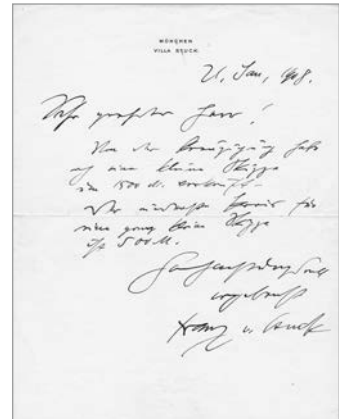 MÜNCHEN
VILLA STUCK
21. Jan. 1908.
Sehr geehrter Herr!
Von der
ich eine kleine Skizze
um 1500 M. verkauft.
Der Preis für
eine ganz kleine Skizze
ist 500 M.
Hochachtungsvoll
ergebenst
Franz v. Stuck